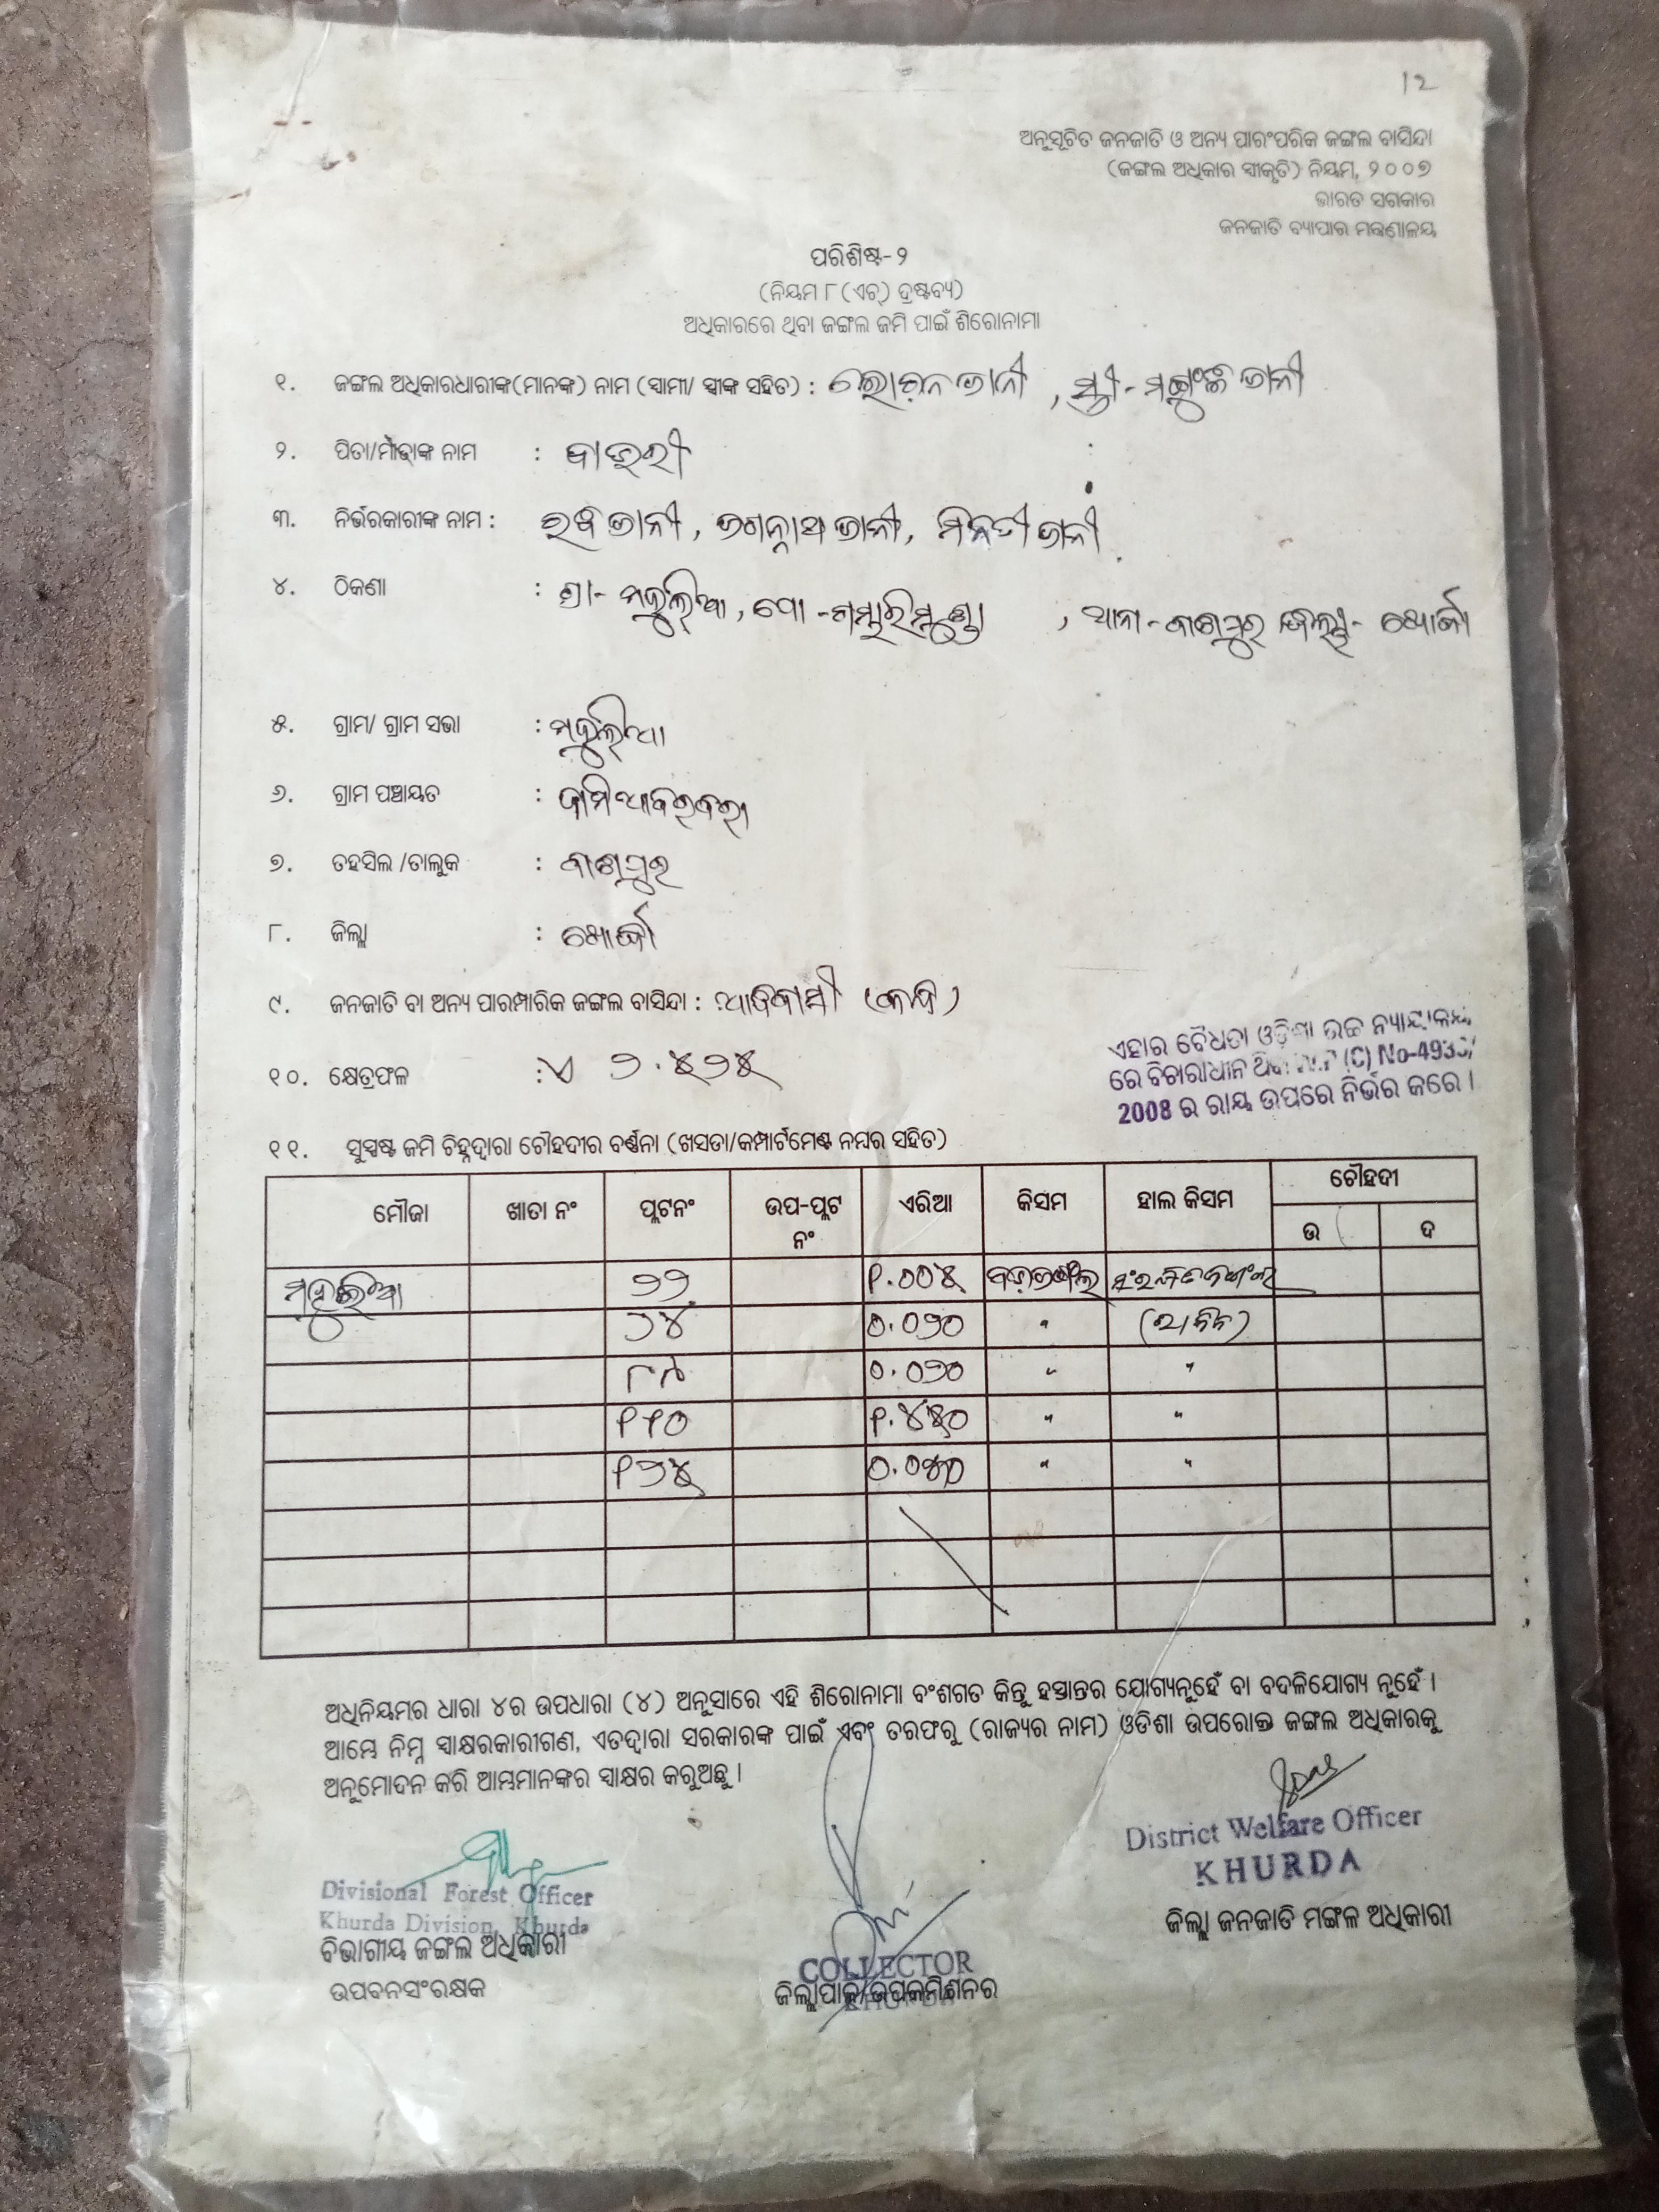 12
ଅନୁସୂଚିତ ଜନଜାତି ଓ ଅନ୍ୟ ପାରଂପରିକ ଜଙ୍ଗଲ ବାସିନ୍ଦା
(ଜଙ୍ଗଲ ଅଧିକାର ସ୍ୱୀକୃତି) ନିୟମ, ୨୦୦୭
ଭାରତ ସରକାର
ଜନଜାତି ବ୍ୟାପାର ମନ୍ତ୍ରଣାଳୟ
ପରିଶିଷ୍ଟ-୨
(ନିୟମ ୮ (ଏଚ୍) ଦ୍ରଷ୍ଟବ୍ୟ)
ଅଧିକାରରେ ଥିବା ଜଙ୍ଗଲ ଜମି ପାଇଁ ଶିରୋନାମା
୧. ଜଙ୍ଗଲ ଅଧିକାରଧାରୀଙ୍କ(ମାନଙ୍କ) ନାମ (ସ୍ୱାମୀ/ ସ୍ତ୍ରୀଙ୍କ ସହିତ) : ଜାନୀ , ସ୍ତ୍ରୀ - ଜାନୀ
୨. ପିତା/ମାତାଙ୍କ ନାମ :
୩. ନିର୍ଭରକାରୀଙ୍କ ନାମ : ରବି ଜାନୀ, ଜଗନ୍ନାଥ ଜାନୀ, ମିନତୀ ଜାନୀ
୪. ଠିକଣା : ଗ୍ରା- ମହୁଲିଆ, ପୋ - ଗମ୍ଭାରିମୁଣ୍ଡା , ଥାନା - ବାଣପୁର ଜିଲ୍ଲା- ଖୋର୍ଦ୍ଧା
୫. ଗ୍ରାମ/ ଗ୍ରାମ ସଭା : ମହୁଲିଆ
୬. ଗ୍ରାମ ପଞ୍ଚାୟତ :
୭. ତହସିଲ /ତାଲୁକ : ବାଣପୁର
୮. ଜିଲ୍ଲା : ଖୋର୍ଦ୍ଧା
୯. ଜନଜାତି ବା ଅନ୍ୟ ପାରମ୍ପାରିକ ଜଙ୍ଗଲ ବାସିନ୍ଦା : ଆଦିବାସୀ (କନ୍ଧ)
୧୦. କ୍ଷେତ୍ରଫଳ : ଏ ୨.୫୨୫
ଏହାର ବୈଧତା ଓଡ଼ିଶା ଉଚ୍ଚ ନ୍ୟାୟାଳୟ
ରେ ବିଚାରାଧୀନ (C) No-4933/
2008 ର ରାୟ ଉପରେ ନିର୍ଭର କରେ ।
୧୧. ସୁସ୍ପଷ୍ଟ ଜମି ଚିହ୍ନଦ୍ୱାରା ଚୌହଦୀର ବର୍ଣ୍ଣନା (ଖସଡା/କମ୍ପାର୍ଟମେଣ୍ଟ ନମ୍ବର ସହିତ)
ମୌଜା ଖାତା ନଂ ପ୍ଲଟନଂ ଉପ-ପ୍ଲଟ ନଂ ଏରିଆ କିସମ ହାଲ କିସମ ଚୌହଦୀ
ଉ ଦ
ମହୁଲିଆ ୨୨ ୧.୦୦୫
୨୪ ୦.୦୨୦ " (ସାବିକ)
୮୯ ୦.୦୨୦ " "
୧୧୦ ୧.୪୩୦ " "
୧୨୫ " "
ଅଧିନିୟମର ଧାରା ୪ର ଉପଧାରା (୪) ଅନୁସାରେ ଏହି ଶିରୋନାମା ବଂଶଗତ କିନ୍ତୁ ହସ୍ତାନ୍ତର ଯୋଗ୍ୟନୁହେଁ ବା ବଦଳିଯୋଗ୍ୟ ନୁହେଁ ।
ଆମ୍ଭେ ନିମ୍ନ ସ୍ୱାକ୍ଷରକାରୀଗଣ, ଏତଦ୍ୱାରା ସରକାରଙ୍କ ପାଇଁ ଏବଂ ତରଫରୁ (ରାଜ୍ୟର ନାମ) ଓଡିଶା ଉପରୋକ୍ତ ଜଙ୍ଗଲ ଅଧିକାରକୁ
ଅନୁମୋଦନ କରି ଆମ୍ଭମାନଙ୍କର ସ୍ୱାକ୍ଷର କରୁଅଛୁ ।
District Welfare Officer
KHURDA
ଜିଲ୍ଲା ଜନଜାତି ମଙ୍ଗଳ ଅଧିକାରୀ
Divisional Forest Officer
Khurda Division, Khurda
ବିଭାଗୀୟ ଜଙ୍ଗଲ ଅଧିକାରୀ
ଉପବନସଂରକ୍ଷକ
COLLECTOR
ଜିଲ୍ଲାପାଳ/ଉପକମିଶନର
KHURDA